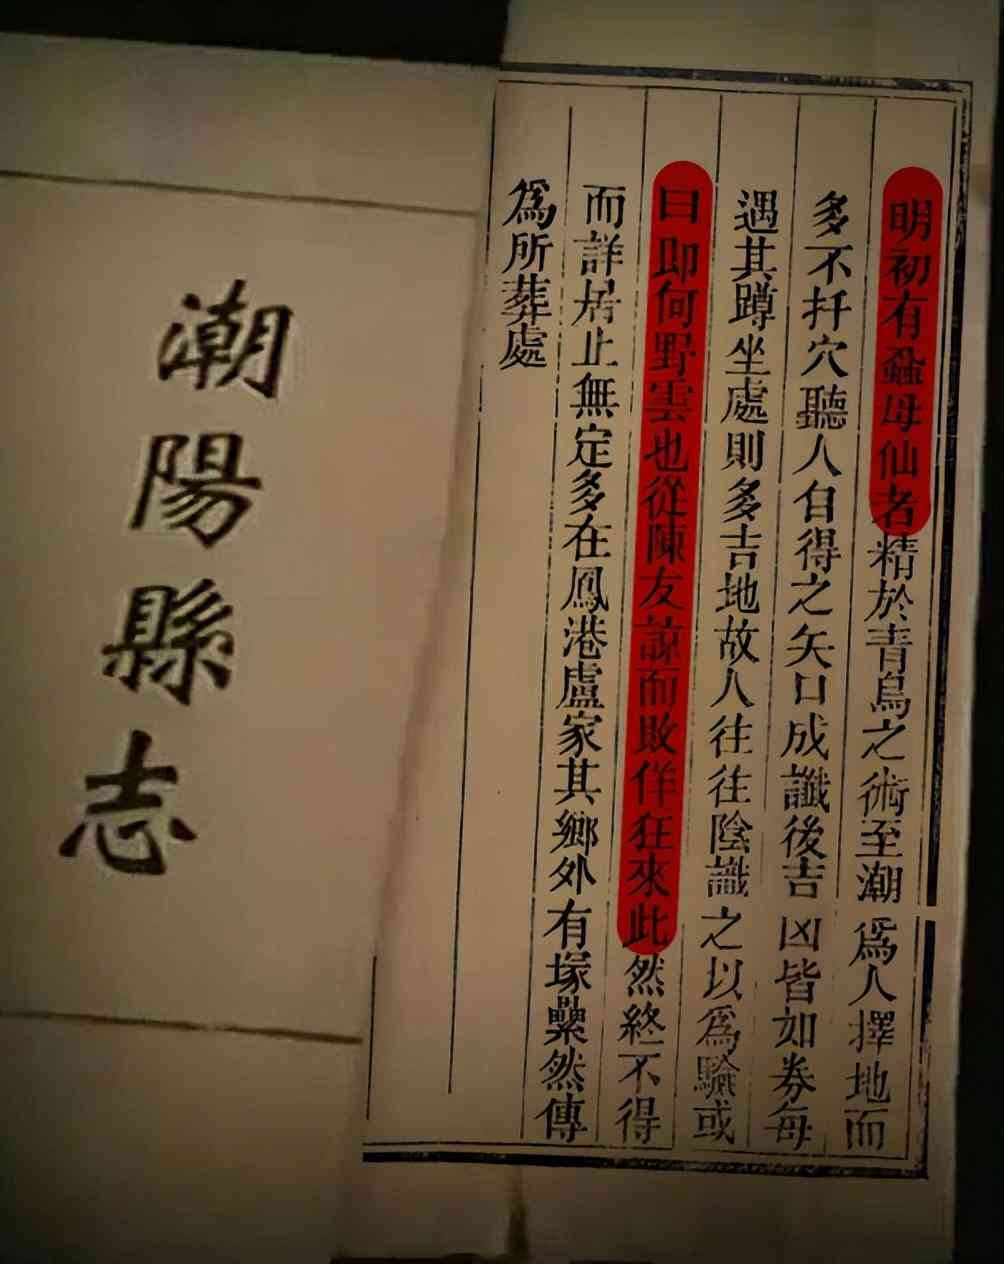 明初有蝨母仙者精於青烏之術至潮爲人擇地而
多不扦穴聽人自得之矢口成讖後吉凶皆如券每
遇其蹲坐處則多吉地故人往往陰識之以爲驗或
曰即何野雲也從陳友諒而敗佯狂來此然終不得
而詳居止無定多在鳳港盧家其鄉外有塚纍然傳
爲所葬處
潮陽縣志